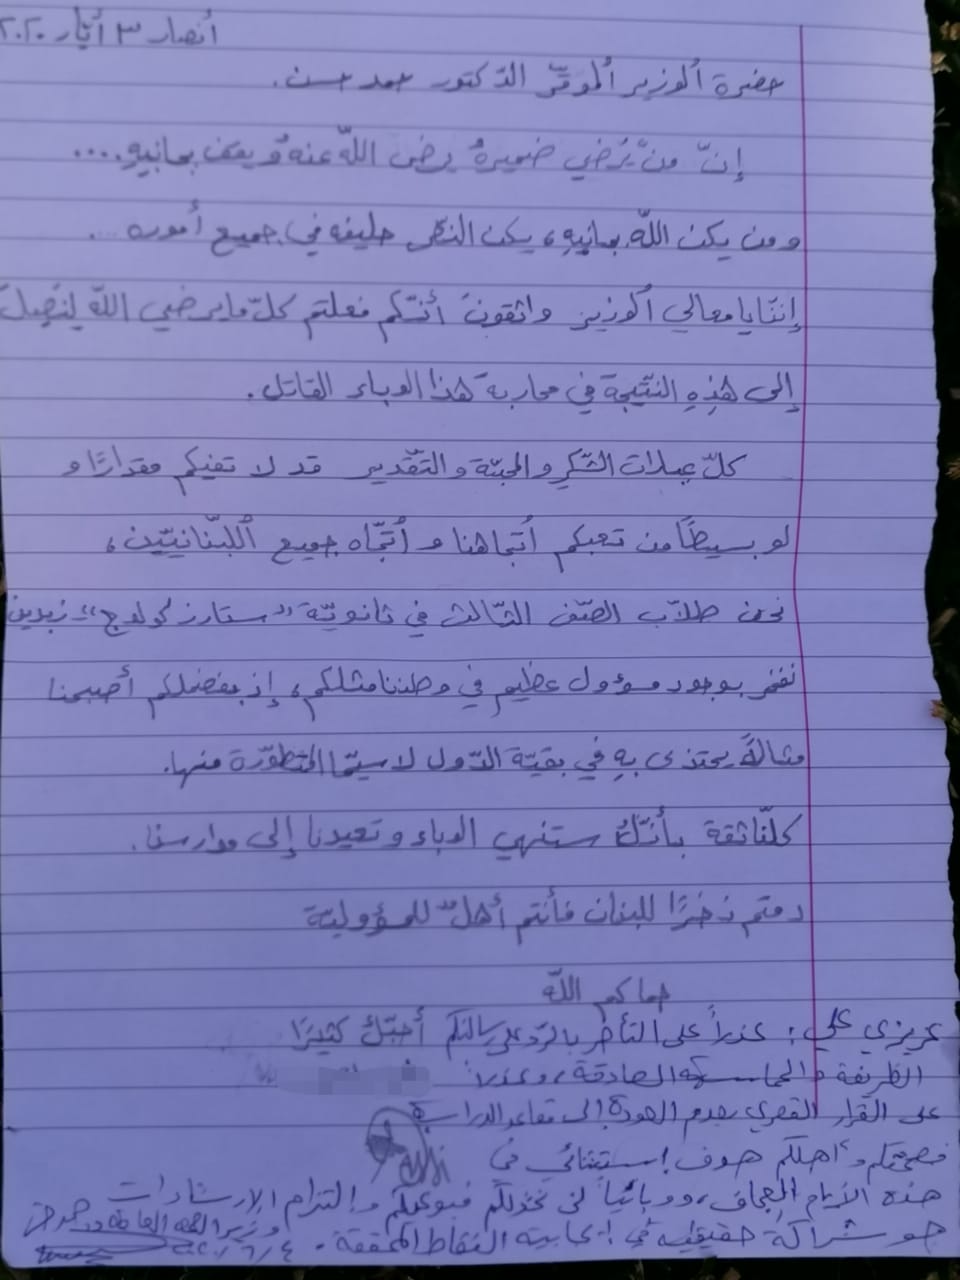 أنصار ٣ أيّار ٢٠٢٠
حضرة ألوزير ألموقّر الدّكتور حمد حسن.
إنّ منّ يُرضي ضميرهُ يرضى اللّه عنهُ ويقف بجانبهِ....
ومن يكن اللّه بجانبِهِ، يكن النّصر حليفه في جميع أموره...
إنّنا يا معالي ألوزير واثقونَ أنّكم فعلتم كلّ ما يرضي اللّه لِنَصِلَ
إلى هٰذِهِ النّتيجة في محاربة هٰذا الوباء القاتل.
كلّ عبارات الشّكرِ والمحبّة والتّقدير قد لا تفيكم مقدارًا و
لو بسيطًا من تعبكم أتجاهنا و أتّجاه جميع أللّبنانيّين،
نحن طلّاب الصّف الثّالث في ثانويّة "ستارز كولدج" - زبدين
نفخر بوجود مسؤول عظيم في وطننا مثلكم، إذ بفضلكم أصبحنا
مثالاً يحتذى بهِ في بقيّة الدّول لا سيّما المتطوّرة منها.
كلّنا ثقة بأنّكَ ستنهي الوباء وتعيدنا إلى مدارسنا.
دمتم ذخرًا للبنان فأنتم أهلٌ للمسؤوليّة
حماكم اللّه
عزيزي علي: عذراً على التأخر بالرّد على رسالتكم أحبّكَ كثيرًا
الظريفة والحماسية الصادقة، وعذراً
على القرار القسري بعدم العودة إلى مقاعد الدراسة
فصحتكم وأهلكم هدف إستثنائي في
هذه الأيام العجاف، ووبائياً لن نخذلكم فبوعيكم والتزام الإرشادات
هو شراكة حقيقية في إيجابية النقاط المحققة. وزير الصحة العامة د. حمد حسن
٢٠٢٠/٦/٤